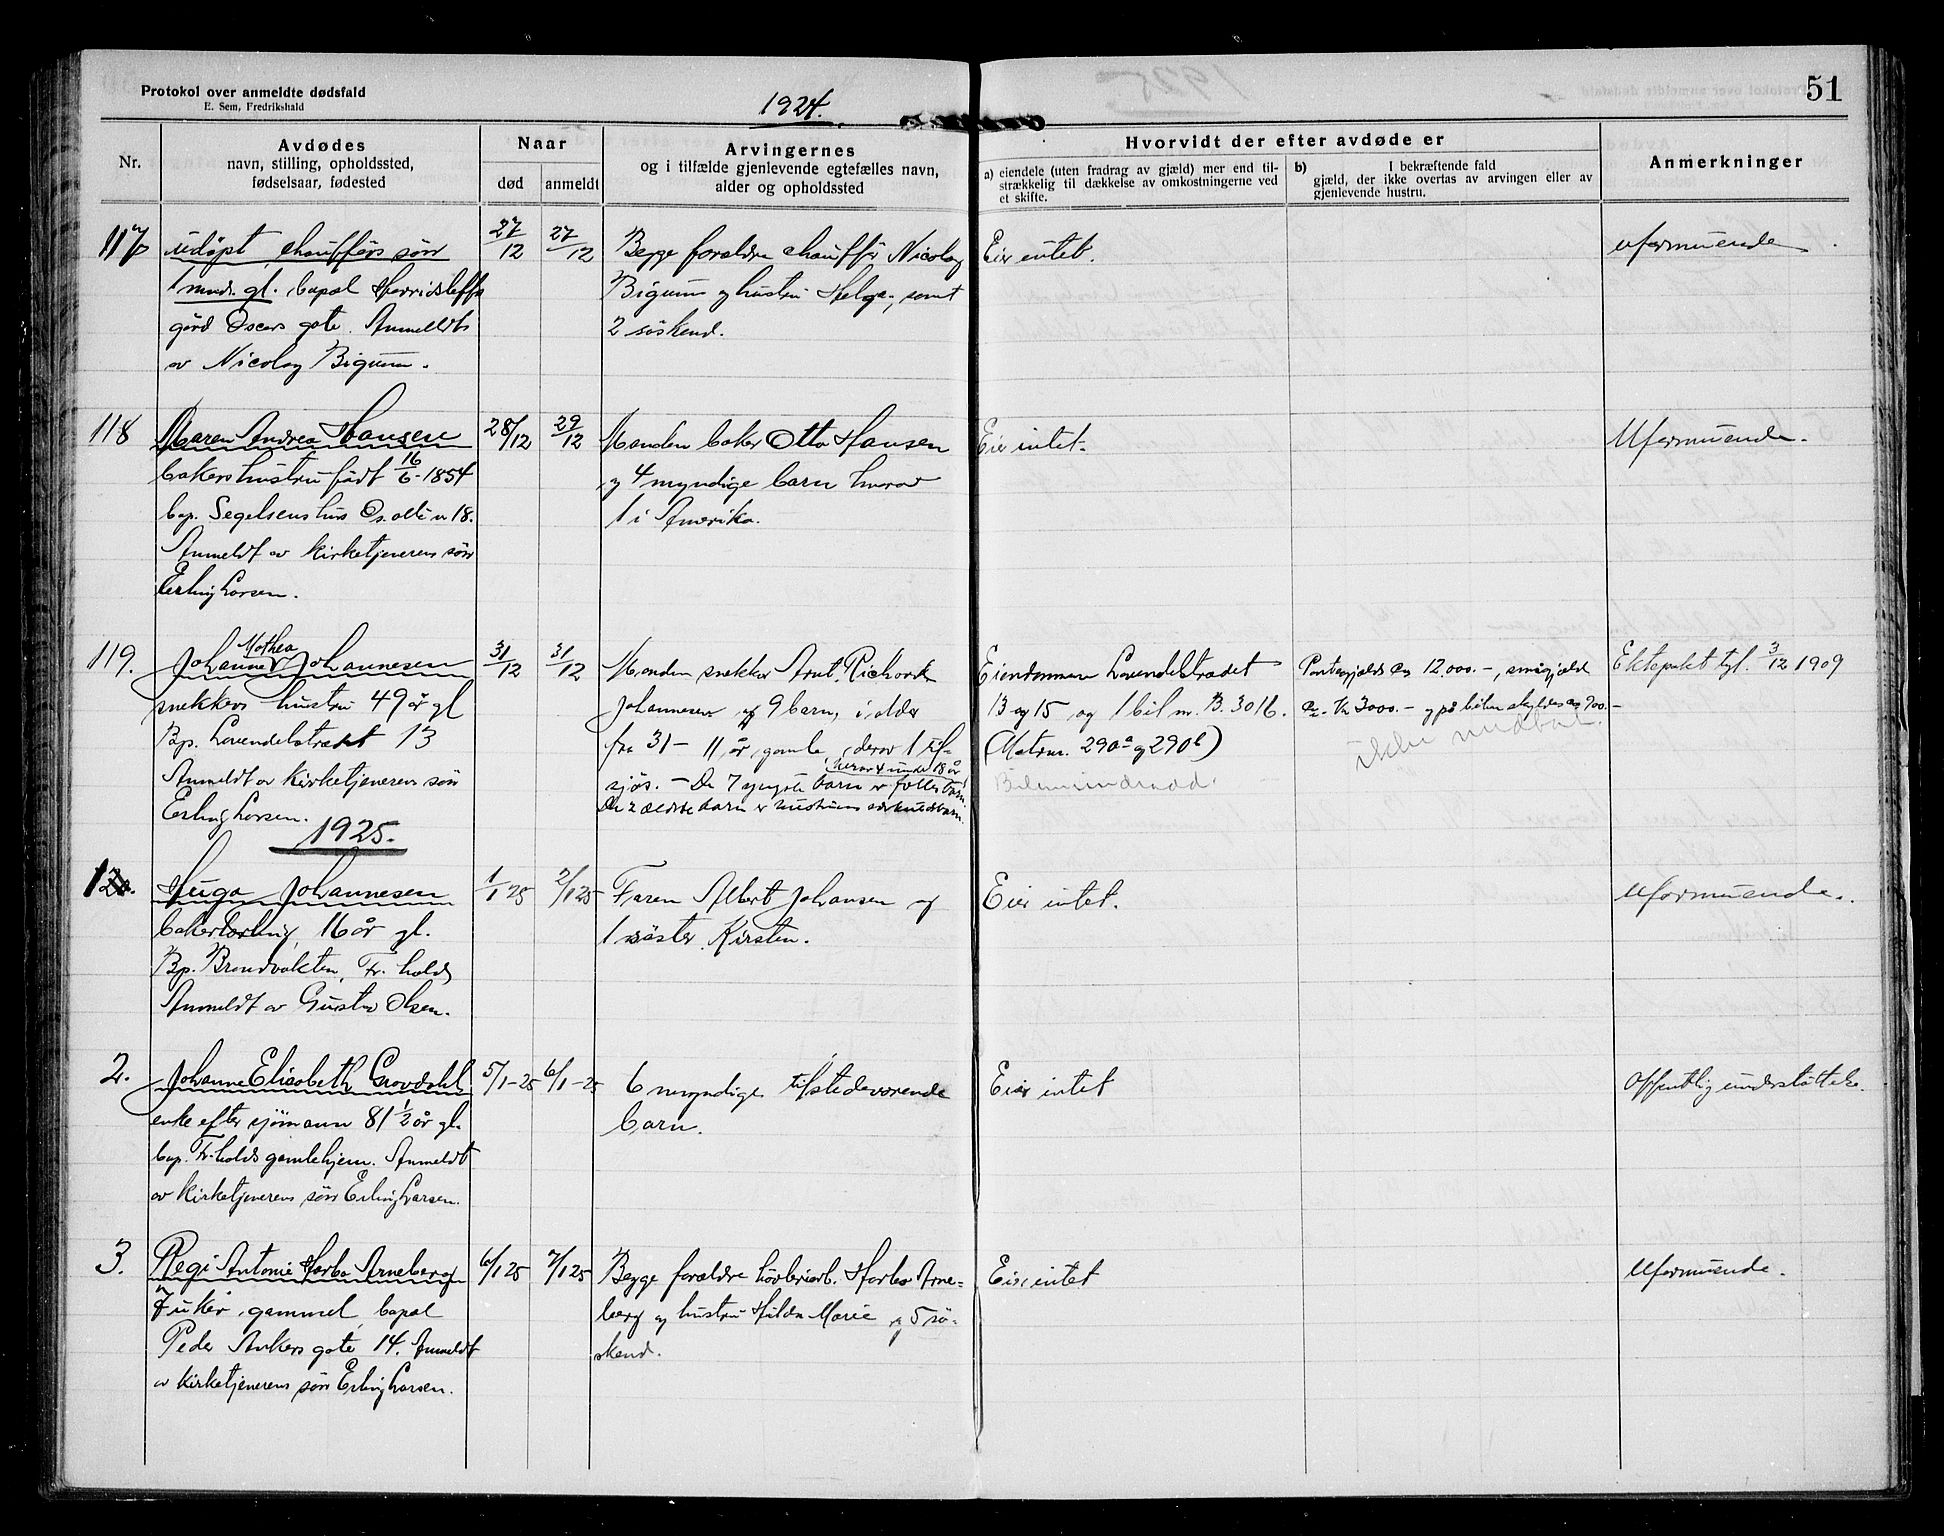 Protokol over anmeldte dødsfald
E. Sem, Fredrikshald
1924.
51
Nr.
Avdødes
navn, stilling, opholdssted,
fødselsaar, fødested
Naar
død
anmeldt
Arvingernes
og i tilfælde gjenlevende egtefælles navn,
alder og opholdssted
Hvorvidt der efter avdøde er
a) eiendele (uten fradrag av gjæld) mer end til-
strækkelig til dækkelse av omkostningerne ved
et skifte.
b) I bekræftende fald
gjæld, der ikke overtas av arvingen eller av
gjenlevende hustru.
Anmerkninger
117
udøpt chaufførs sønn
1 mnd. gl. bopæl
gård Oscars gate. Anmeldt
av Nicolay Bigum.
27/12
27/12
Begge foreldre chauffør Nicolay
Bigum og hustru Helga, samt
2 søskend.
Eier intet.
uformuende
118
Maren Andrea Hansen
bakers hustru født 16/6-1854
bop. Segelsens hus Os. alle n 18.
Anmeldt av kirketjenerens sønn
Erling Larsen.
28/12
29/12
Manden baker Otto Hansen
og 4 myndige barn hvorav
1 i Amerika.
Eier intet.
Uformuende.
119.
Mathea
Johanne Johannesen
snekkers hustru 49 år gl
Bp. Lavendelstrædet 13
Anmeldt av kirketjenerens sønn
Erling Larsen.
31/12
31/12
Manden snekker Arnt Richard
Johannesen og 9 barn, i alder
fra 31 - 11 år gamle, derav 1 til-
sjøs. - De 7 yngste barn er felles barn
herav 4 under 18 år
De 2 ældste barn er hustruens særkuldsbarn.
Eiendommen Lavendelstrædet
13 og 15 og 1 bil nr. B. 3016.
(Matrnr. 290a og 290b)
Pantegjæld ca 12,000.-, smågjæld
ca. kr 3000.- og på bilen skyldes ca 900.-
ikke
Ektepakt tgl. 3/12 1909
1925.
1
Hugo Johannesen
bakerlærling, 16 år gl.
Bp. Brandvakten, Fr.hald
Anmeldt av Gustav Olsen.
1/1 25
2/1 25
Faren Albert Johansen og
1 søster Kirsten.
Eier intet.
Uformuende.
2.
Johanne Elisabeth Grovdahl
enke efter sjømann 81 1/2 år gl.
bop. Fr.halds gamlehjem. Anmeldt
av kirketjenerens sønn Erling Larsen.
5/1-25
6/1-25
6 myndige tilstedeværende
barn.
Eier intet
Offentlig understøttelse.
3.
Regi Antonie Harbo Arneberg
7 uker gammel, bopæl
Peder Ankers gate 14. Anmeldt
av kirketjenerens sønn Erling Larsen.
6/1 25
7/1 25
Begge forældre høvleriarb. Harbo Arne-
berg og hustru Hilda Marie og 5 sø-
skend.
Eier intet
Uformuende.